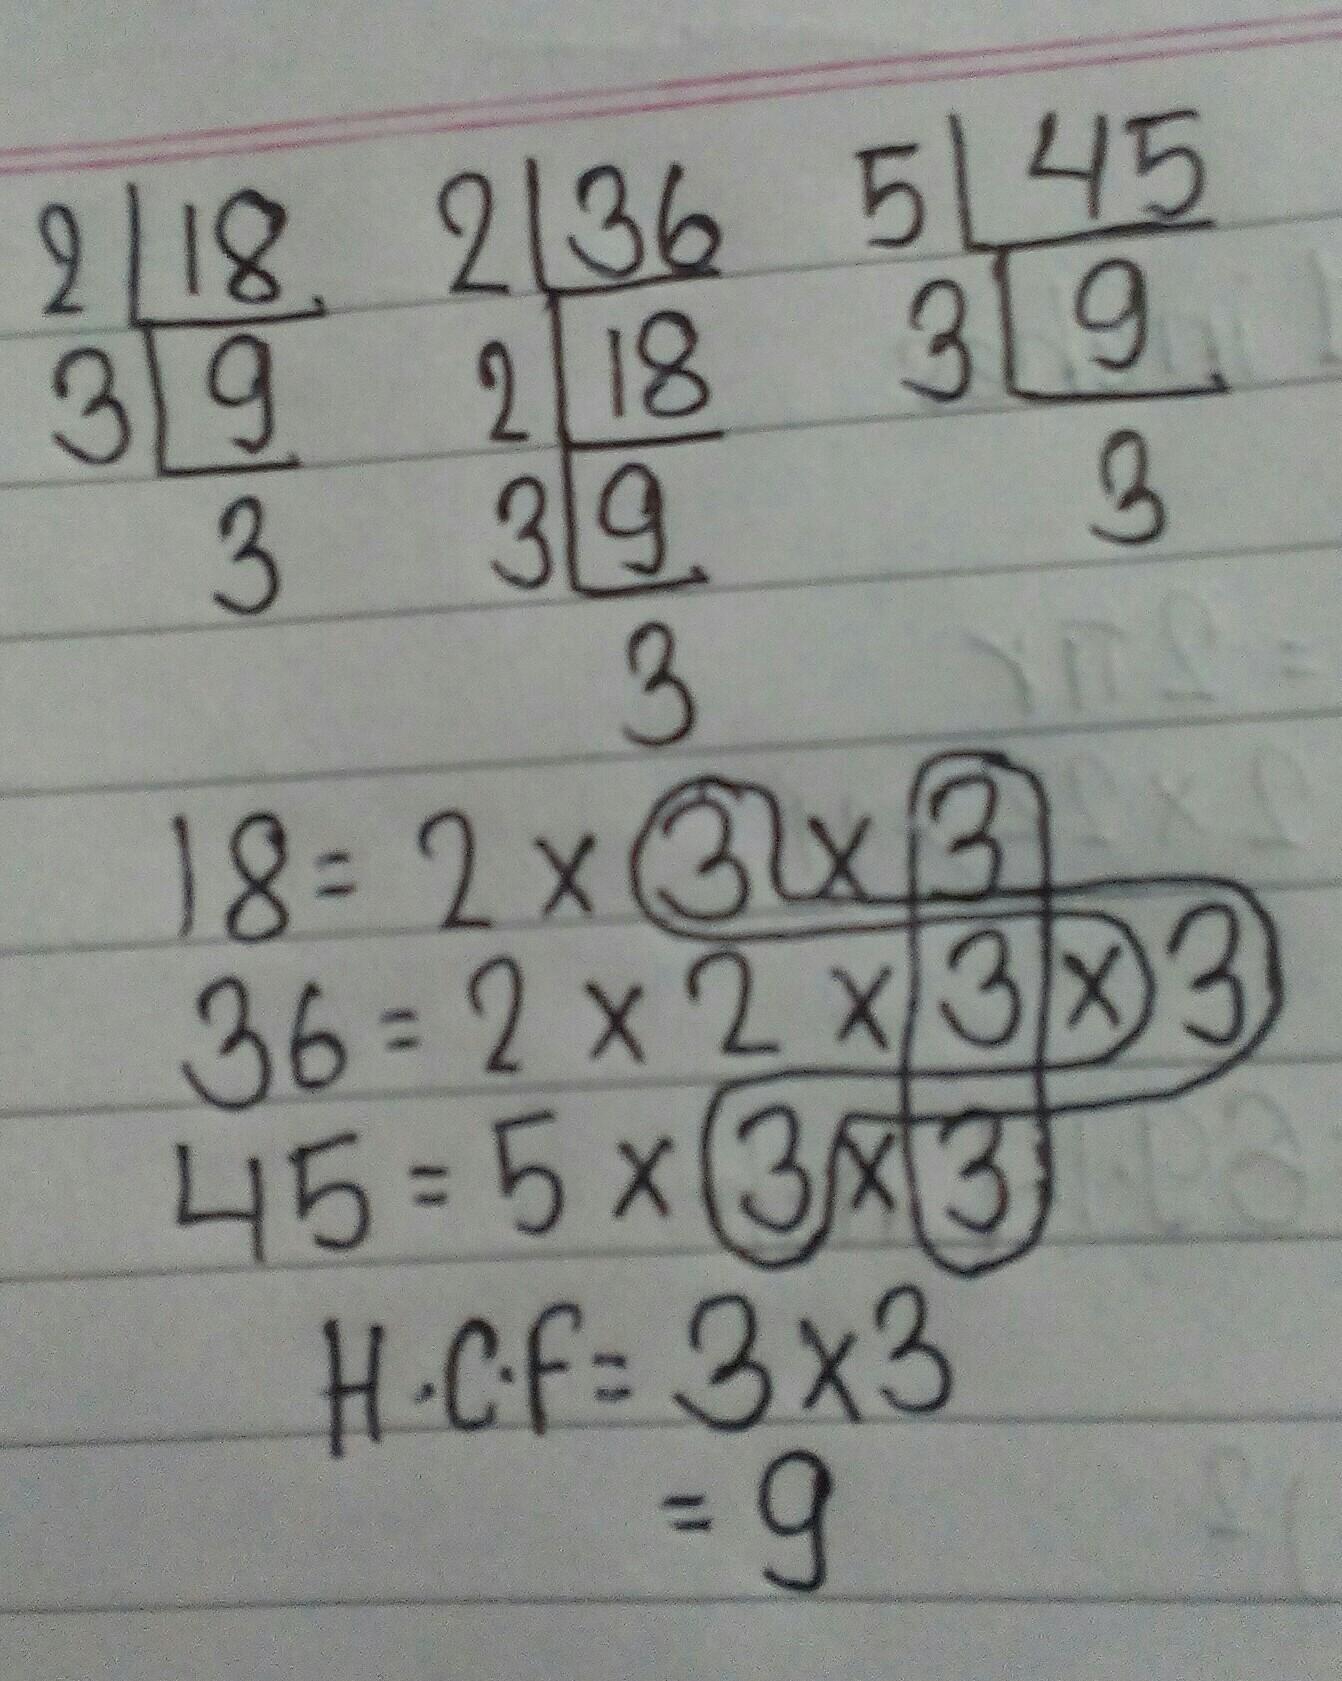 2 | 18 2 | 36 5 | 45
3 | 9 2 | 18 3 | 9
3 3 | 9 3
3
18 = 2 × 3 × 3
36 = 2 × 2 × 3 × 3
45 = 5 × 3 × 3
H.C.F = 3 × 3
= 9